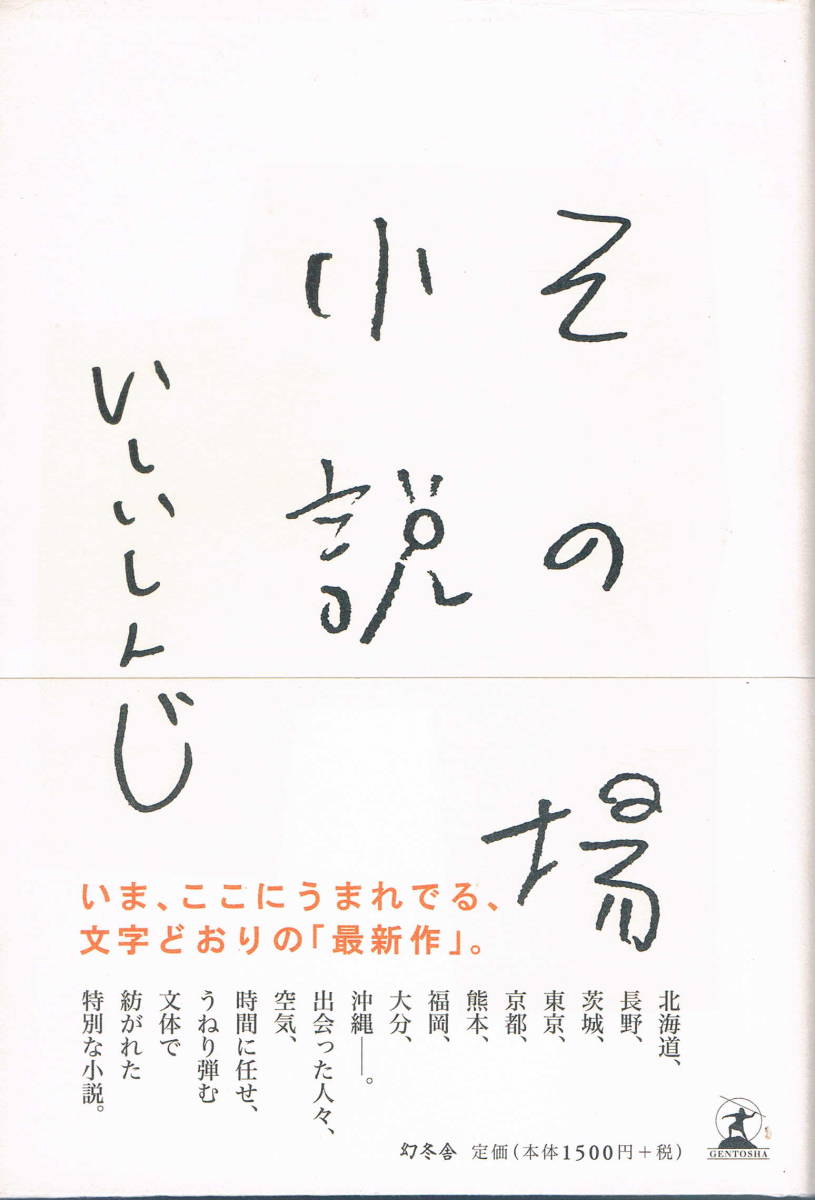 その場
小説
いしいしんじ
いま、ここにうまれでる、
文字どおりの「最新作」。
北海道、
長野、
茨城、
東京、
京都、
熊本、
福岡、
大分、
沖縄──。
出会った人々、
空気、
時間に任せ、
うねり弾む
文体で
紡がれた
特別な小説。
幻冬舎 定価(本体1500円+税)
GENTOSHA